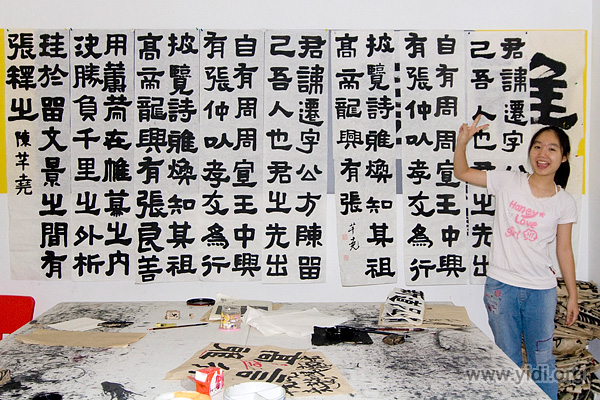 君諱遷字
己吾人也君之先出
自有周周宣王中興
有張仲以孝友為行
披覽詩雅煥知其祖
高帝龍興有張
君諱遷字公方陳留
己吾人也君之先出
自有周周宣王中興
有張仲以孝友為行
披覽詩雅煥知其祖
高帝龍興有張良善
用籌策在帷幕之內
決勝負千里之外析
珪於留文景之間有
張釋之
Love
www.yidi.org